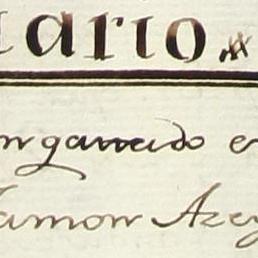 tario
n garrido e
amon Azey